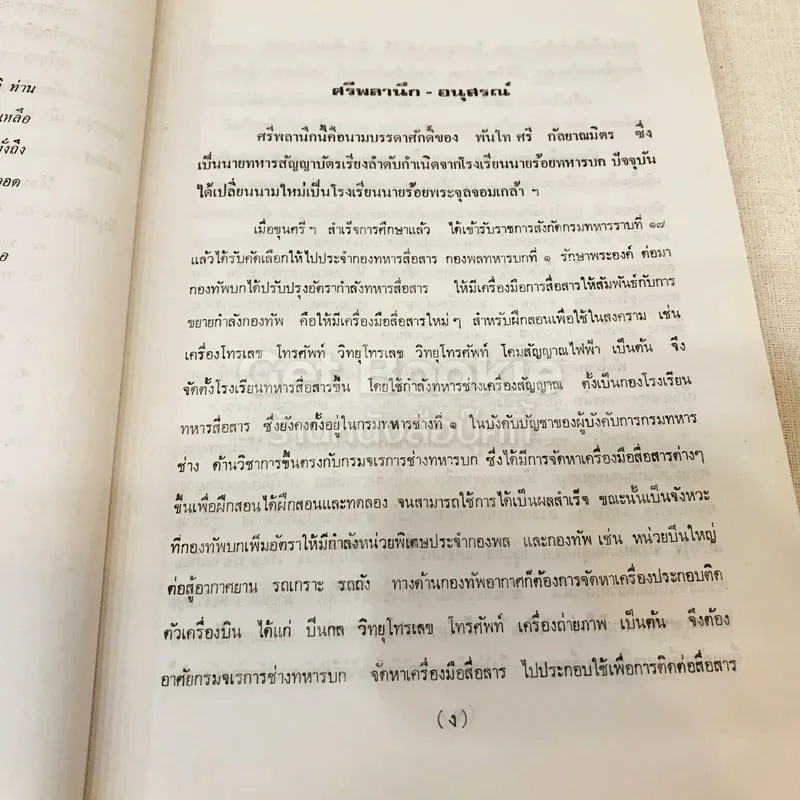 ท่าน
เหลือ
ศรีพลานึก - อนุสรณ์
ศรีพลานึกนี้คือนามบรรดาศักดิ์ของ พันโท ศรี กัลยาณมิตร ซึ่ง
เป็นนายทหารสัญญาบัตรเรียงลำดับกำเนิดจากโรงเรียนนายร้อยทหารบก ปัจจุบัน
ได้เปลี่ยนนามใหม่เป็นโรงเรียนนายร้อยพระจุลจอมเกล้า ฯ
เมื่อขุนศรี ฯ สำเร็จการศึกษาแล้ว ได้เข้ารับราชการสังกัดกรมทหารราบที่ ๑๗
แล้วได้รับคัดเลือกให้ไปประจำกองทหารสื่อสาร กองพลทหารบกที่ ๑ รักษาพระองค์ ต่อมา
กองทัพบกได้ปรับปรุงอัตรากำลังทหารสื่อสาร ให้มีเครื่องมือการสื่อสารให้สัมพันธ์กับการ
ขยายกำลังกองทัพ คือให้มีเครื่องมือสื่อสารใหม่ ๆ สำหรับฝึกสอนเพื่อใช้ในสงคราม เช่น
เครื่องโทรเลข โทรศัพท์ วิทยุโทรเลข วิทยุโทรศัพท์ โคมสัญญาณไฟฟ้า เป็นต้น จึง
จัดตั้งโรงเรียนทหารสื่อสารขึ้น โดยใช้กำลังทหารช่างเครื่องสัญญาณ ตั้งเป็นกองโรงเรียน
ทหารสื่อสาร ซึ่งยังคงตั้งอยู่ในกรมทหารช่างที่ ๑ ในบังคับบัญชาของผู้บังคับการกรมทหาร
ช่าง ด้านวิชาการขึ้นตรงกับกรมจเรการช่างทหารบก ซึ่งได้มีการจัดหาเครื่องมือสื่อสารต่างๆ
ขึ้นเพื่อฝึกสอนได้ฝึกสอนและทดลอง จนสามารถใช้การได้เป็นผลสำเร็จ ขณะนั้นเป็นจังหวะ
ที่กองทัพบกเพิ่มอัตราให้มีกำลังหน่วยพิเศษประจำกองพล และกองทัพ เช่น หน่วยปืนใหญ่
ต่อสู้อากาศยาน รถเกราะ รถถัง ทางด้านกองทัพอากาศก็ต้องการจัดหาเครื่องประกอบติด
ตัวเครื่องบิน ได้แก่ ปืนกล วิทยุโทรเลข โทรศัพท์ เครื่องถ่ายภาพ เป็นต้น จึงต้อง
อาศัยกรมจเรการช่างทหารบก จัดหาเครื่องมือสื่อสาร ไปประกอบใช้เพื่อการติดต่อสื่อสาร
(ง)